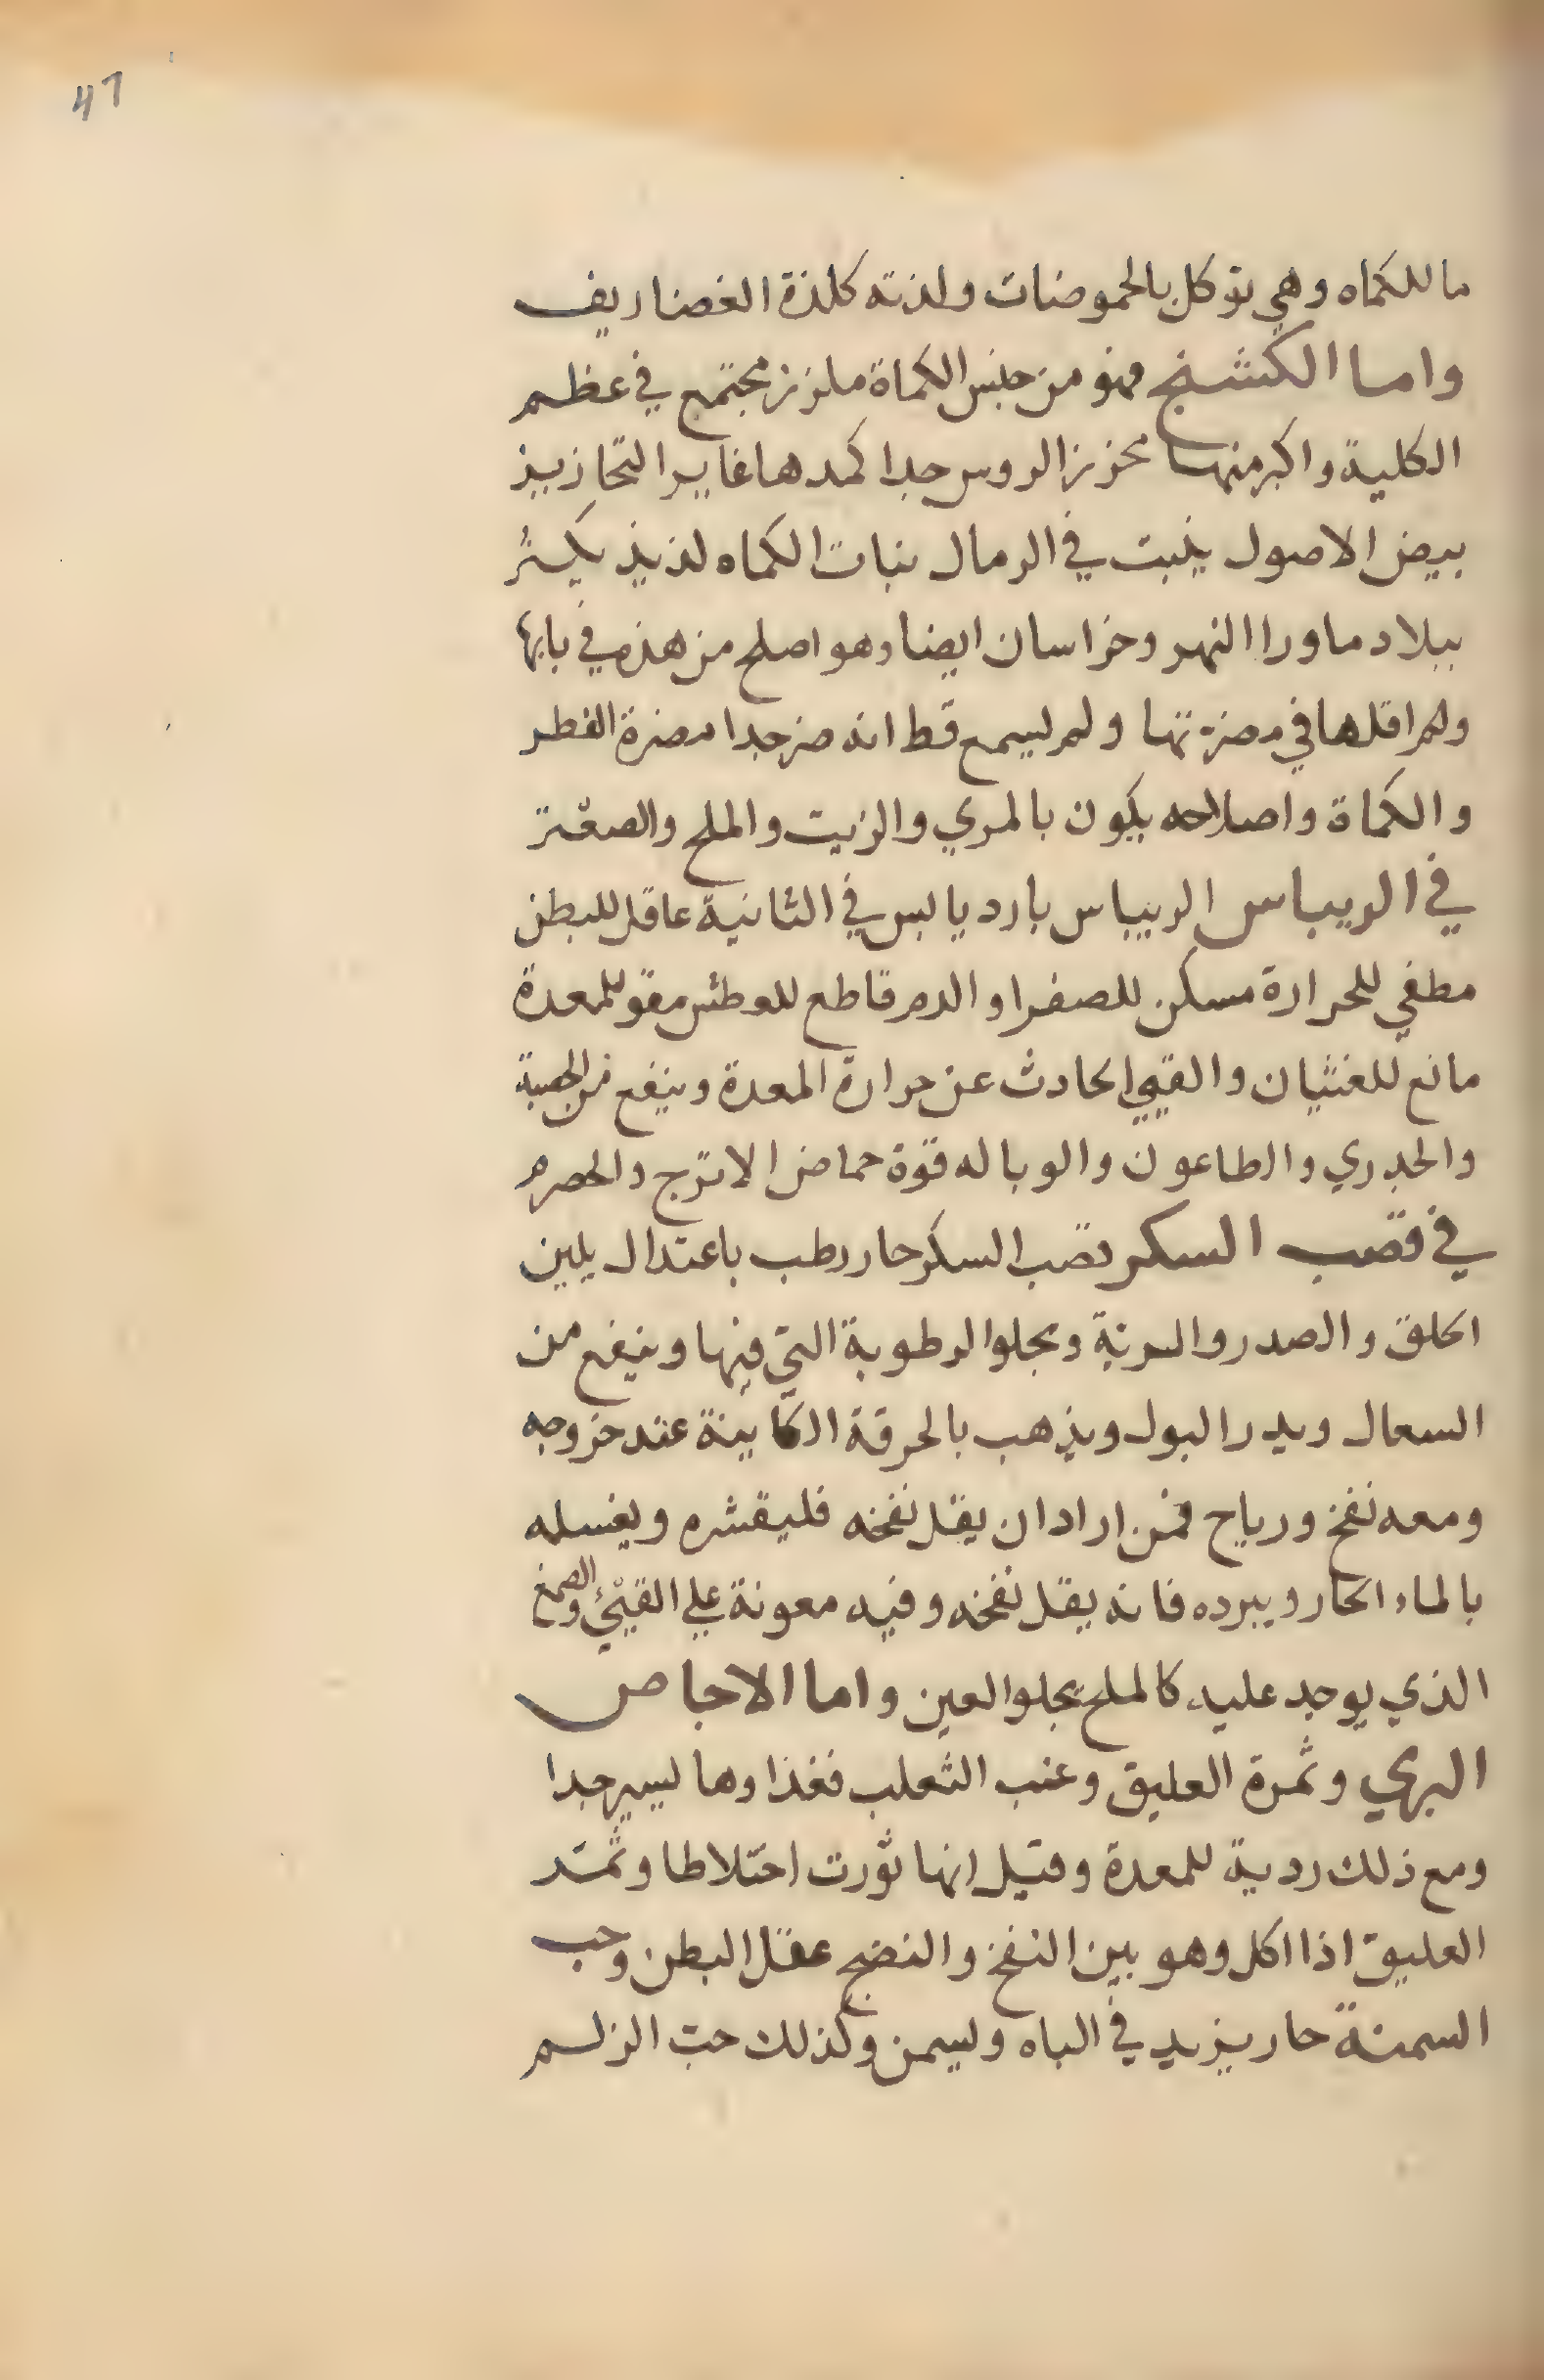 47
ما للكماه وهي توكل بالحموضات ولذته كلذة الغضاريف
واما الكشنج فهو من جنس الكماة ملزز مجتمع في عظم
الكلية واكبر منها محزز الروس جدا كمدها غاير التحازيز
بيض الاصول ينبت في الرمال نبات الكماه لذيذ يكثر
ببلاد ما ورا النهر وخراسان ايضا وهو اصلح من هذه في بابها
ولم اقلها في مضرتها ولم يسمع قط انه ضر جدا مضرة الفطر
والكماة واصلاحه يكون بالمري والزيت والملح والصعتر
في الريباس الريباس بارد يابس في الثانية عاقل للبطن
مطفي للحرارة مسكن للصفرا والدم قاطع للعطش مقو للمعدة
مانع للغثيان والقيي الحادث عن حرارة المعدة وينفع من الحصبة
والجدري والطاعون والوبا له قوة حماض الاترج والحصرم
في قصب السكر قصب السكر حار رطب باعتدال يلين
الحلق والصدر والرية ويجلوا الرطوبة التي فيها وينفع من
السعال ويدر البول ويذهب بالحرقة الكاينة عند خروجه
ومعه نفخ ورياح فمن اراد ان يقل نفخه فليقشره ويغسله
بالماء الحار ويبرده فانه يقل نفخه وفيه معونة علي القيئ والصمغ
الذي يوجد عليه كالملح يجلوا العين واما الاجاص
البري وثمرة العليق وعنب الثعلب فغذاوها يسير جدا
ومع ذلك ردية للمعدة وقيل انها تورث اختلاطا وثمر
العليق اذا اكل وهو بين النفخ والنضج عقل البطن وحب
السمنة حار يزيد في الباه ويسمن وكذلك حب الزلم